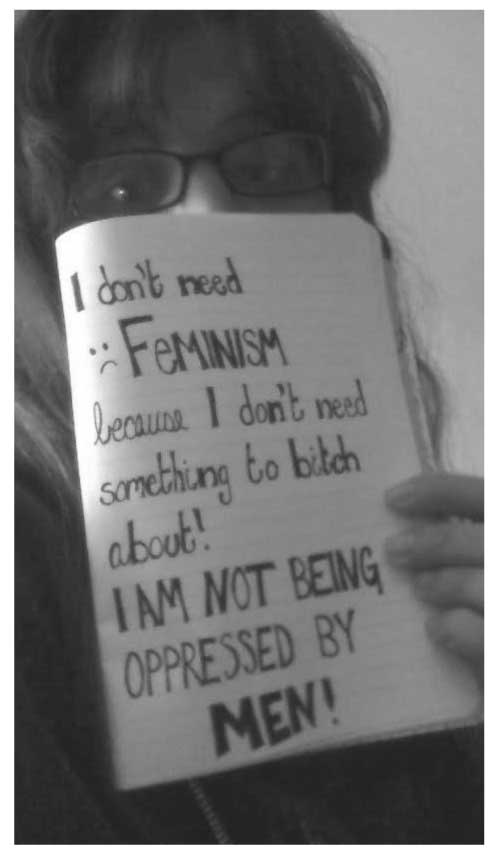 I don't need
:( FeMINISM
because I don't need
something to bitch
about!
I AM NOT BEING
OPPRESSED BY
MEN!